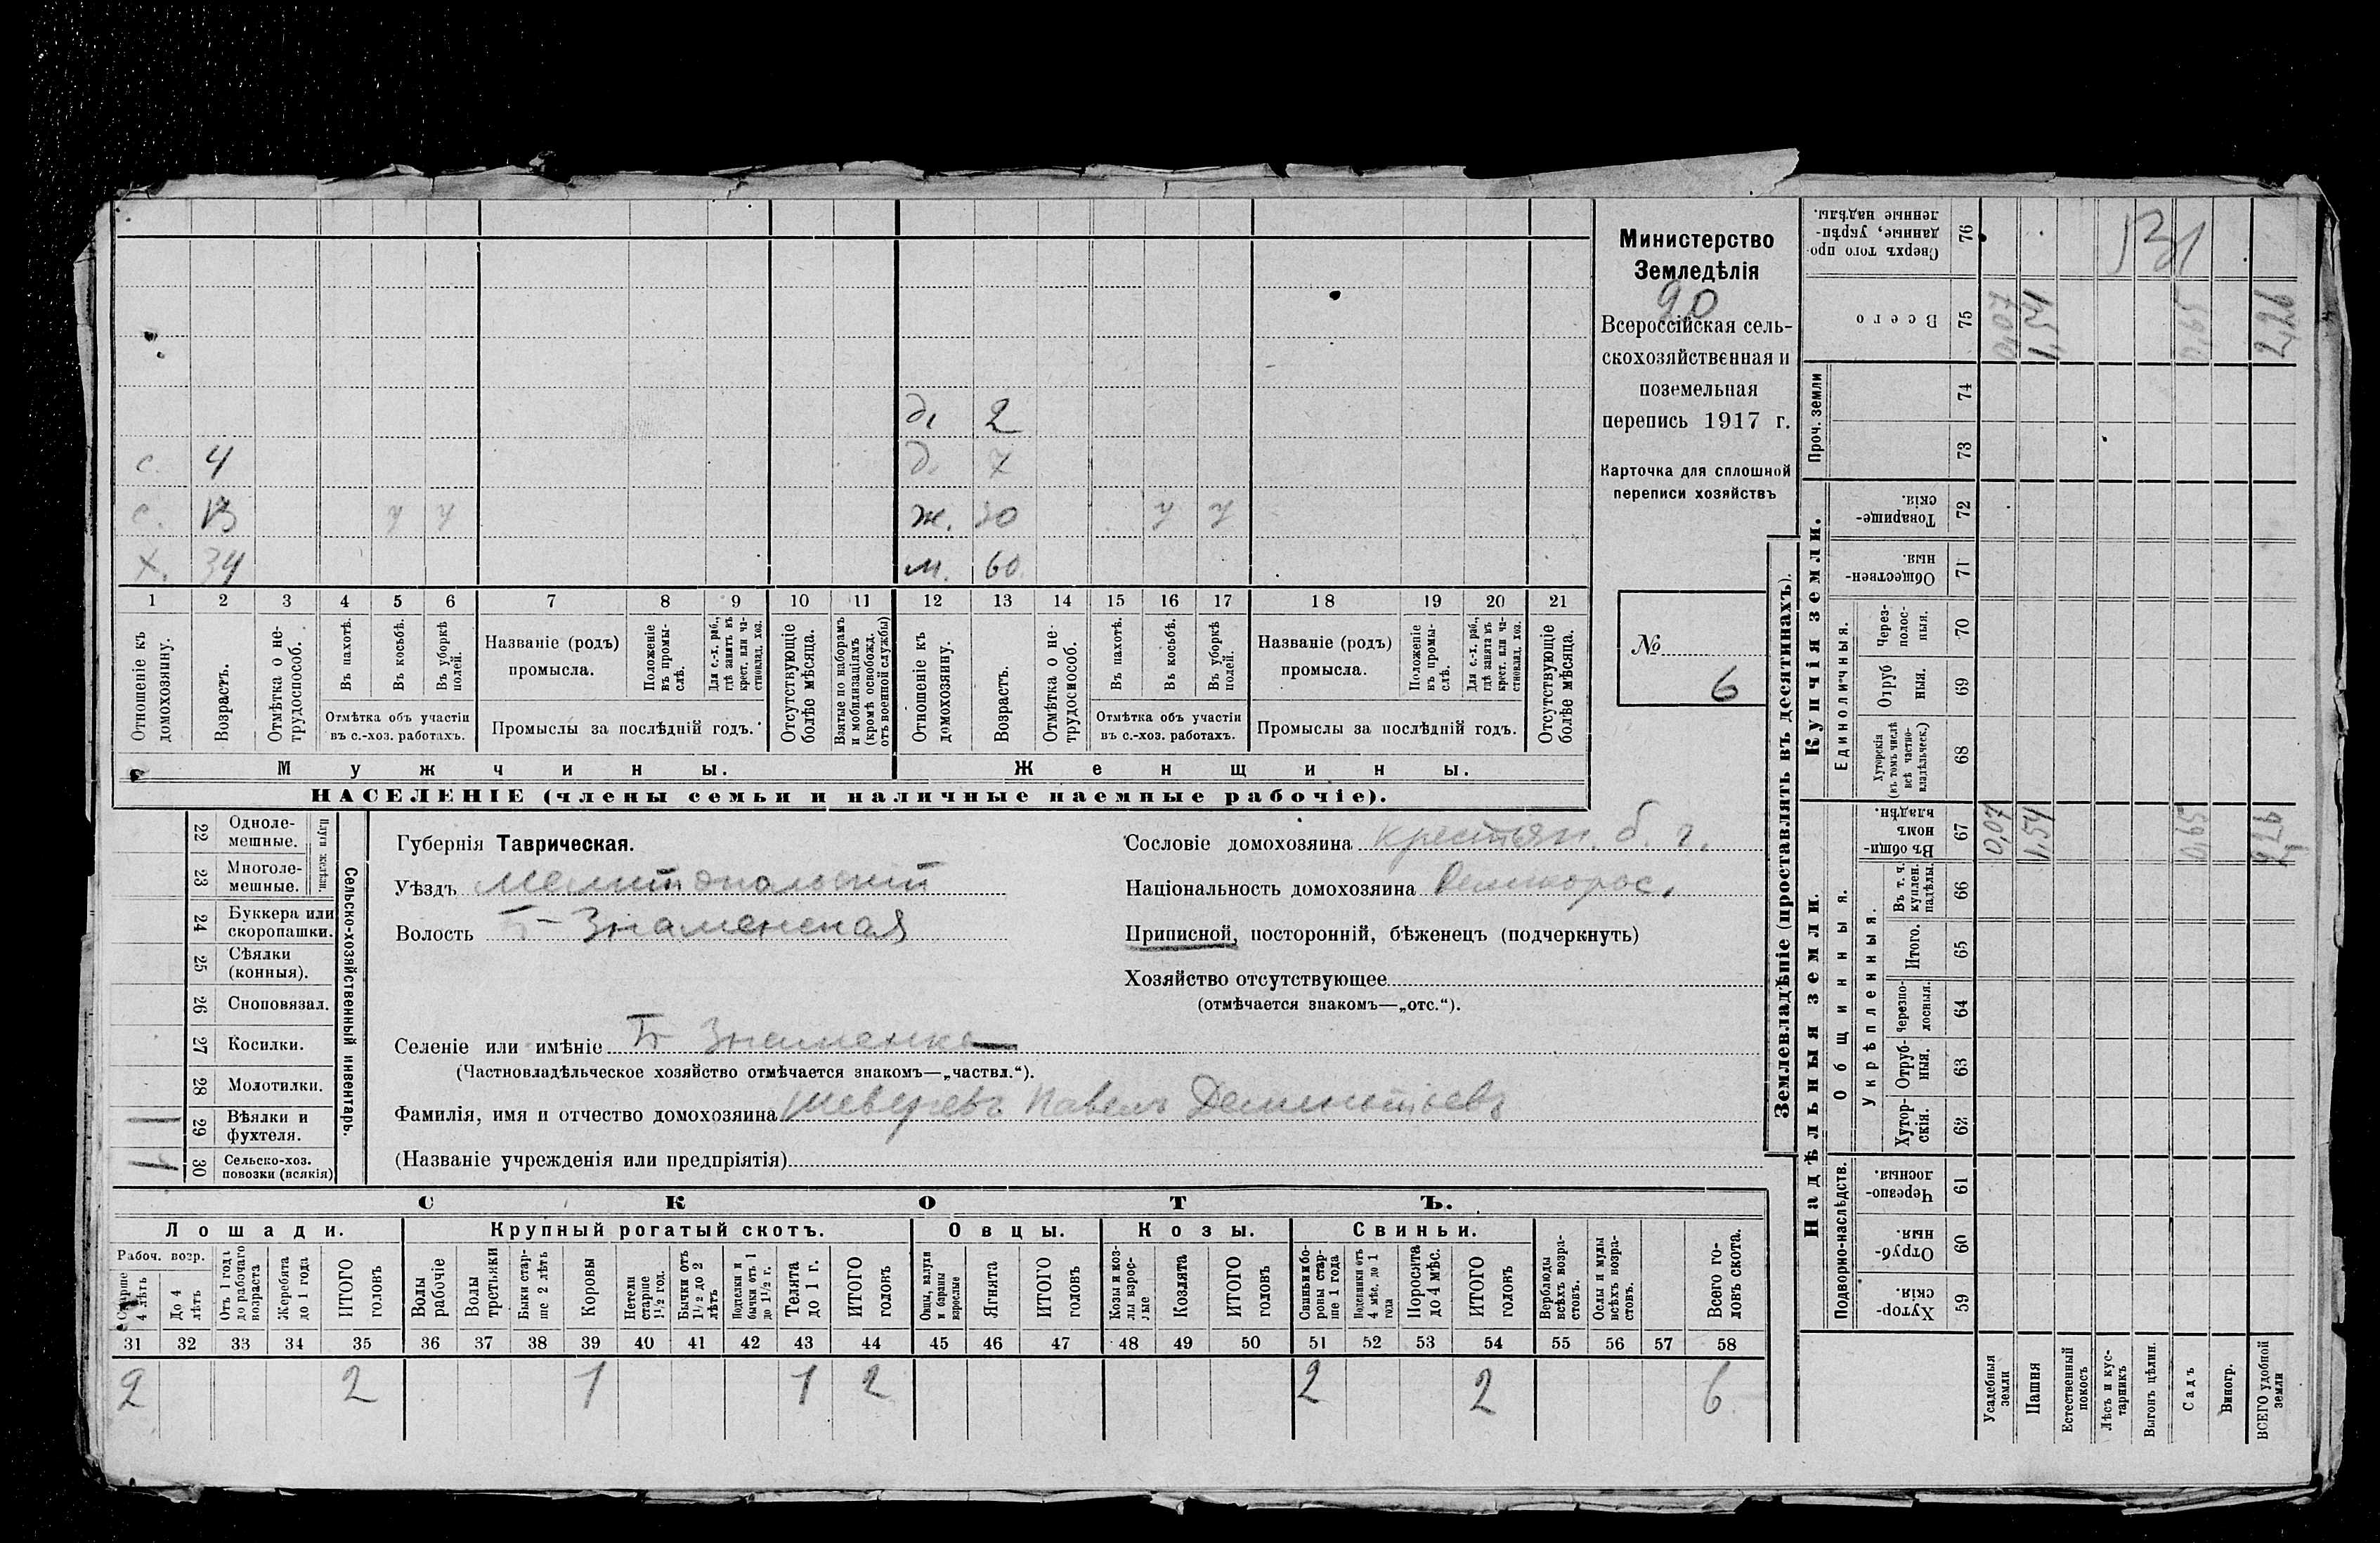 Министерство
Земледѣлія
20
Всероссійская сель-
скохозяйственная и
поземельная
перепись 1917 г.
Карточка для сплошной
переписи хозяйствъ
№
6
д. 2
с. 4 д. 7
с. 13 у у ж. 30 у у
х. 34 м. 60
1 2 3 4 5 6 7 8 9 10 11 12 13 14 15 16 17 18 19 20 21
Отношеніе къ домохозяину.
Возрастъ.
Отмѣтка о не-трудоспособ.
Въ пахотѣ.
Въ косьбѣ.
Въ уборкѣ полей.
Отмѣтка объ участіи въ с.-хоз. работахъ.
Названіе (родъ) промысла.
Положеніе въ промы-слѣ.
Для с.-х. раб., гдѣ занятъ въ крест. или ча-стновлад. хоз.
Промыслы за послѣдній годъ.
Отсутствующіе болѣе мѣсяца.
Взятые по наборамъ и мобилизаціямъ (кромѣ освобожд. отъ военной службы)
Отношеніе къ домохозяину.
Возрастъ.
Отмѣтка о не-трудоспособ.
Въ пахотѣ.
Въ косьбѣ.
Въ уборкѣ полей.
Отмѣтка объ участіи въ с.-хоз. работахъ.
Названіе (родъ) промысла.
Положеніе въ промы-слѣ.
Для с.-х. раб., гдѣ занята въ крест. или ча-стновлад. хоз.
Промыслы за послѣдній годъ.
Отсутствующіе болѣе мѣсяца.
Мужчины. Женщины.
НАСЕЛЕНІЕ (члены семьи и наличные наемные рабочіе).
22 Одноле-мешные.
23 Многоле-мешные.
24 Буккера или скоропашки.
25 Сѣялки (конныя).
26 Сноповязал.
27 Косилки.
28 Молотилки.
1 29 Вѣялки и фухтеля.
1 30 Сельско-хоз. повозки (всякія)
Сельско-хозяйственный инвентарь.
Губернія Таврическая.
Уѣздъ Мелитопольскій
Волость Б-Знаменская
Селеніе или имѣніе Б Знаменка
(Частновладѣльческое хозяйство отмѣчается знакомъ—„частвл.“).
Фамилія, имя и отчество домохозяина Павелъ Дементьевъ
(Названіе учрежденія или предпріятія)
Сословіе домохозяина крестьян. б. г.
Національность домохозяина Великорос.
Приписной, посторонній, бѣженецъ (подчеркнуть)
Хозяйство отсутствующее
(отмѣчается знакомъ—„отс.“).
СКОТЪ.
Лошади. Крупный рогатый скотъ. Овцы. Козы. Свиньи.
Рабоч. возр.
Старше 4 лѣтъ
До 4 лѣтъ
Отъ 1 года до рабочаго возраста
Жеребята до 1 года
ИТОГО головъ
Волы рабочіе
Волы третьяки
Быки стар-ше 2 лѣтъ
Коровы
Нетели старше 1½ год.
Бычки отъ 1½ до 2 лѣтъ
Подтелки и бычки отъ 1 до 1½ г.
Телята до 1 г.
ИТОГО головъ
Овцы, валухи и бараны взрослые
Ягнята
ИТОГО головъ
Козы и коз-лы взрос-лые
Козлята
ИТОГО головъ
Свиньи и бо-ровы стар-ше 1 года
Подсвинки отъ 4 мѣс. до 1 года
Поросята до 4 мѣс.
ИТОГО головъ
Верблюды всѣхъ возра-стовъ.
Ослы и мулы всѣхъ возра-стовъ.
Всего го-ловъ скота.
31 32 33 34 35 36 37 38 39 40 41 42 43 44 45 46 47 48 49 50 51 52 53 54 55 56 57 58
2 2 1 1 2 2 2 6
Землевладѣніе (проставлять въ десятинахъ).
Надѣльныя земли. Купчія земли. Проч. земли
Подворно-наслѣдств. Общинныя. Укрѣпленныя. Единоличныя.
Сверхъ того про-данные, укрѣп-ленные надѣлы. 76 131
Всего 75 0,07 1,54 0,65 2,26
74
73
Товарище-скія. 72
Обществен-ныя. 71
Через-полос-ныя. 70
Отруб ныя. 69
Хуторскія (въ томъ числѣ всѣ частно-владѣльческ.) 68
Въ общи-номъ владѣн. 67 0,07 1,54 0,65 2,26
Въ т. ч. куплен. надѣлы. 66
Итого. 65
Черезпо-лосныя. 64
Отруб-ныя. 63
Хутор-скія. 62
Черезпо-лосныя. 61
Отруб-ныя. 60
Хутор-скія. 59
Усадебныя земли
Пашня
Естественный покосъ
Лѣсъ и кус-тарникъ
Выгонъ цѣлин.
Садъ
Виногр.
ВСЕГО удобной земли